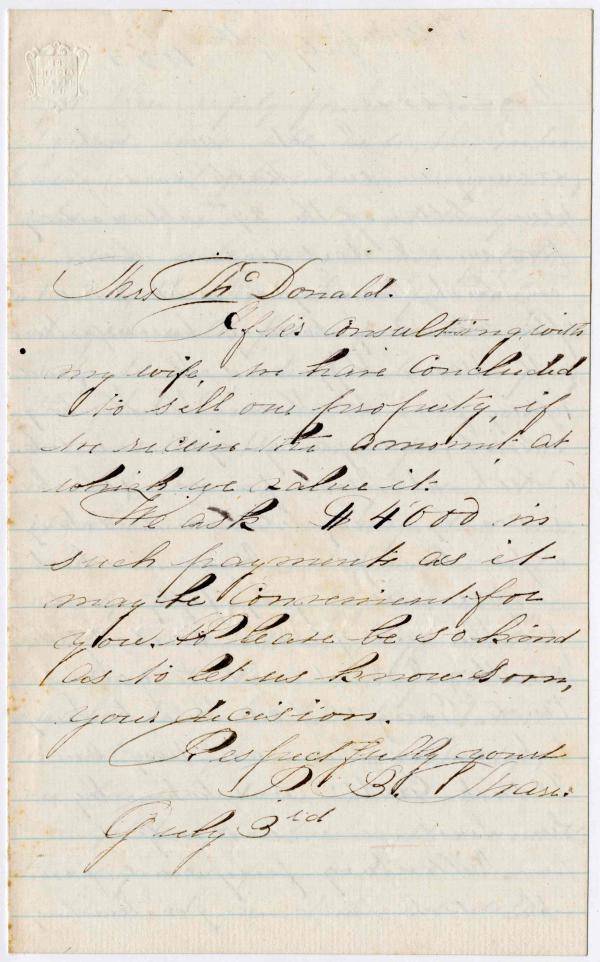 Mrs McDonald.
After consulting with
my wife, we have concluded
to sell our property, if
we receive the amount at
which we value it.
We ask $4000 in
such payments as it
may be convenient for
you. Please be so kind
as to let us know soon,
your decision.
Respectfully yours
B.
July 3rd